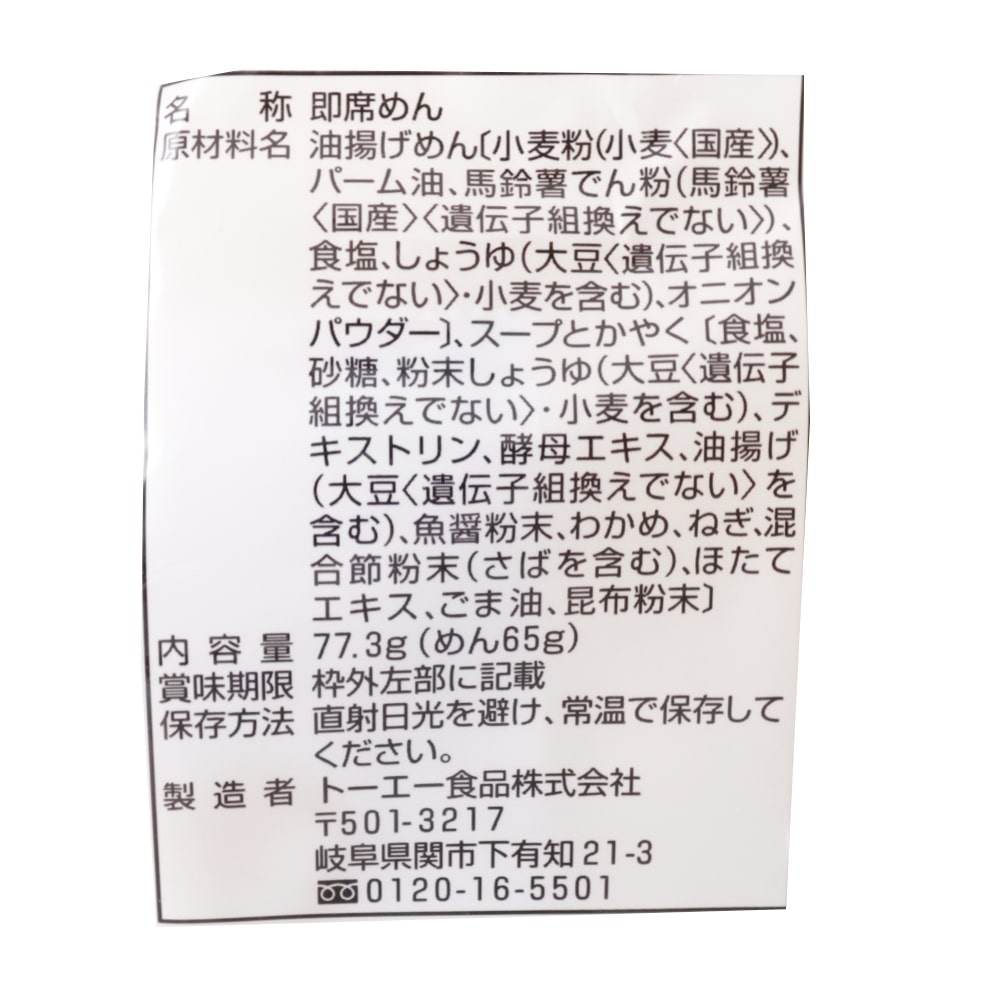 名称 即席めん
原材料名 油揚げめん〔小麦粉(小麦〈国産〉)、
パーム油、馬鈴薯でん粉(馬鈴薯
〈国産〉〈遺伝子組換えでない〉)、
食塩、しょうゆ(大豆〈遺伝子組換
えでない〉・小麦を含む)、オニオン
パウダー〕、スープとかやく〔食塩、
砂糖、粉末しょうゆ(大豆〈遺伝子
組換えでない〉・小麦を含む)、デ
キストリン、酵母エキス、油揚げ
(大豆〈遺伝子組換えでない〉を
含む)、魚醤粉末、わかめ、ねぎ、混
合節粉末(さばを含む)、ほたて
エキス、ごま油、昆布粉末〕
内容量 77.3g(めん65g)
賞味期限 枠外左部に記載
保存方法 直射日光を避け、常温で保存して
ください。
製造者 トーエー食品株式会社
〒501-3217
岐阜県関市下有知21-3
0120-16-5501